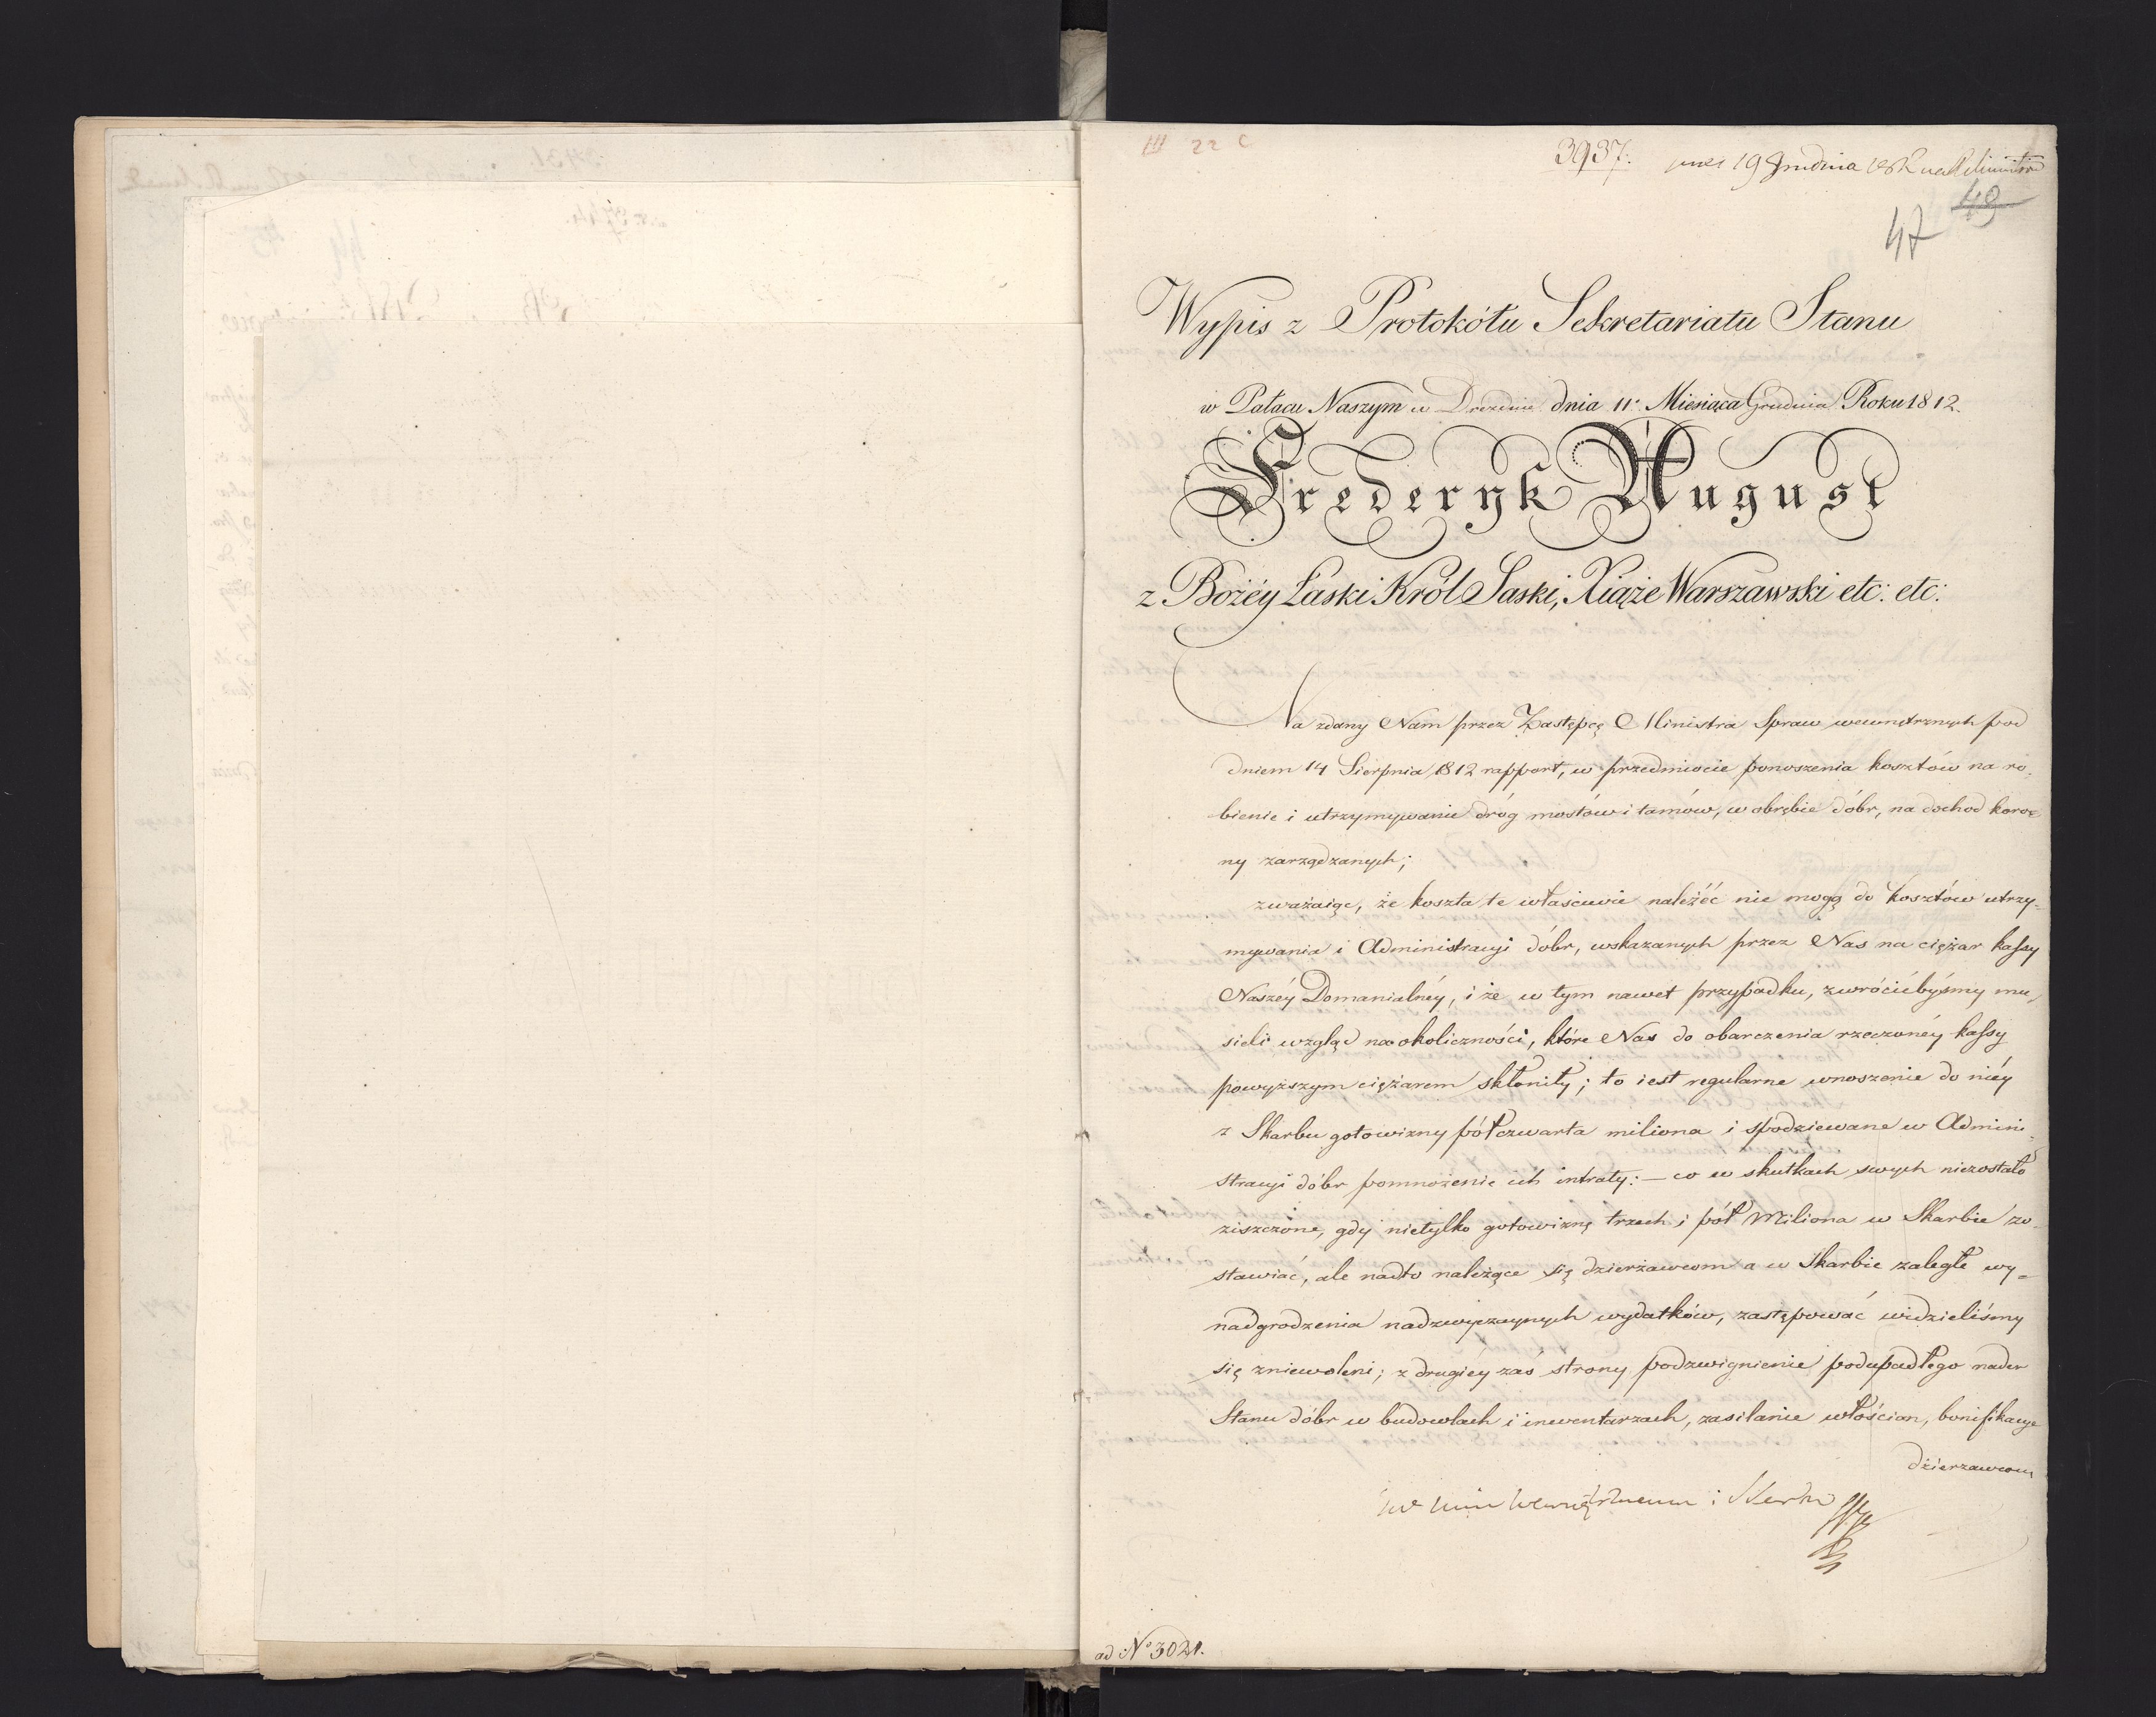 III 22 C
3937. 19 Grudnia
49
47
Wypis z Protokółu Sekretariatu Stanu
w Pałacu Naszym w Dreznie dnia 11. Miesiąca Grudnia Roku 1812.
Frederyk August
z Bożéy Łaski Król Saski, Xiąże Warszawski etc: etc:
Na zdany Nam przez Zastępcę Ministra Spraw wewnętrznych pod
dniem 14 Sierpnia 1812 rapport, w przedmiocie ponoszenia kosztów na ro-
bienie i utrzymywanie dróg mostów i tamów, w obrębie dóbr, na dochod koron-
ny zarządzanych;
zważaiąc, że koszta te własciwie należéć nie mogą do kosztów utrzy-
mywania i Administracyi dóbr, wskazanych przez Nas na ciężar kassy
Naszéy Domanialnéy, i że w tym nawet przypadku, zwrócićbyśmy mu-
sieli wzgląd na okoliczności, które Nas do obarczenia rzeczonéy kassy
powyższym ciężarem skłoniły; to iest regularne wnoszenie do niéy
z Skarbu gotowizny półczwarta miliona i spodziewane w Admini-
stracyi dóbr pomnożenie ich intraty: — co w skutkach swych niezostało
ziszczone, gdy nietylko gotowiznę trzech i pół Miliona w Skarbie zo-
stawiać, ale nadto należące się dzierżawcom a w Skarbie zaległe wy-
nadgrodzenia nadzwyczaynych wydatków, zastępować widzieliśmy
się zniewoleni; z drugiéy zaś strony podzwignienie podupadłego nader
Stanu dóbr w budowlach i inwentarzach, zasilanie włościan, bonifikacye
dzierzawcom
ad N° 3021.